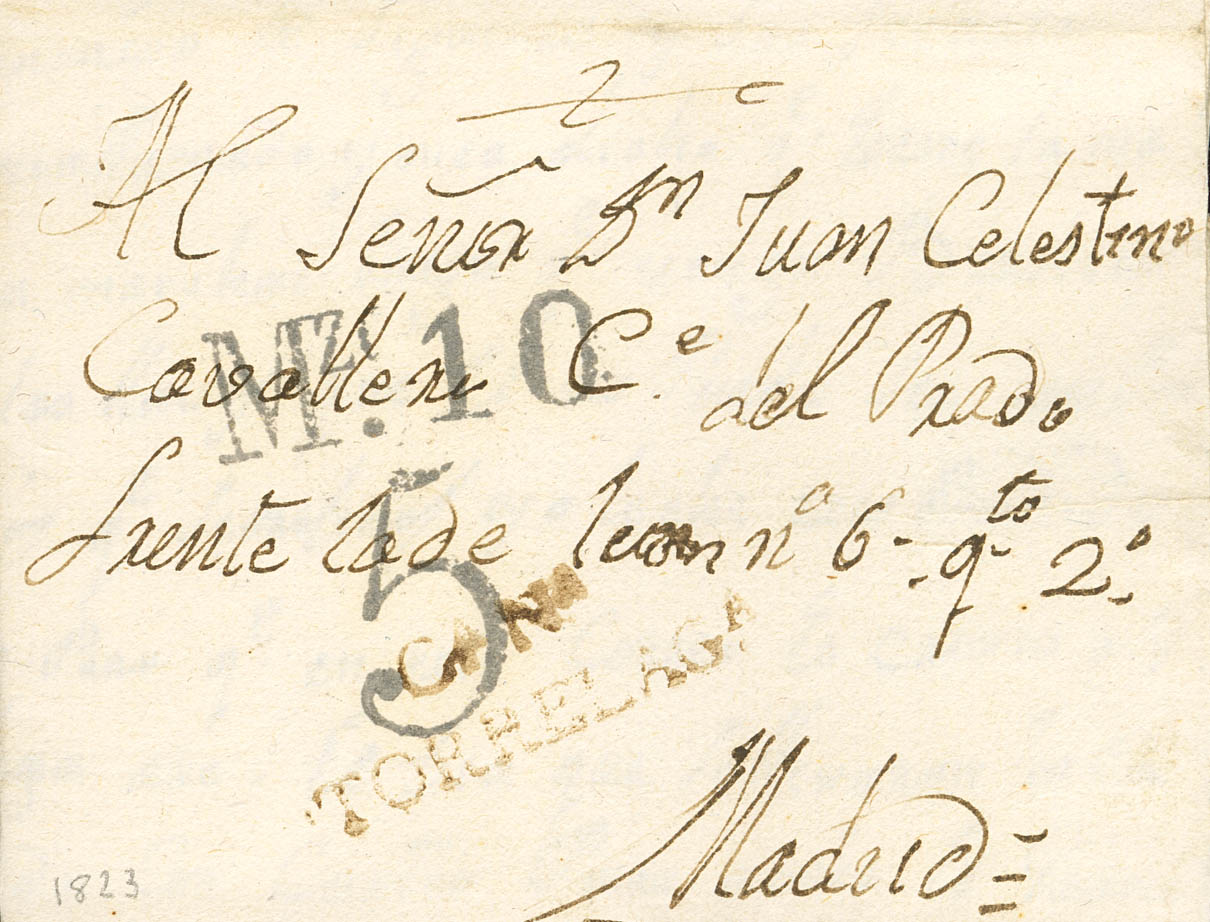 Al Señor Dn Juan Celestino
Cavallero Ce del Prado
Mza. 10
frente la de leon no 6 - qto 2o
5
CAN
TORRELAGA
Madrid =
1823